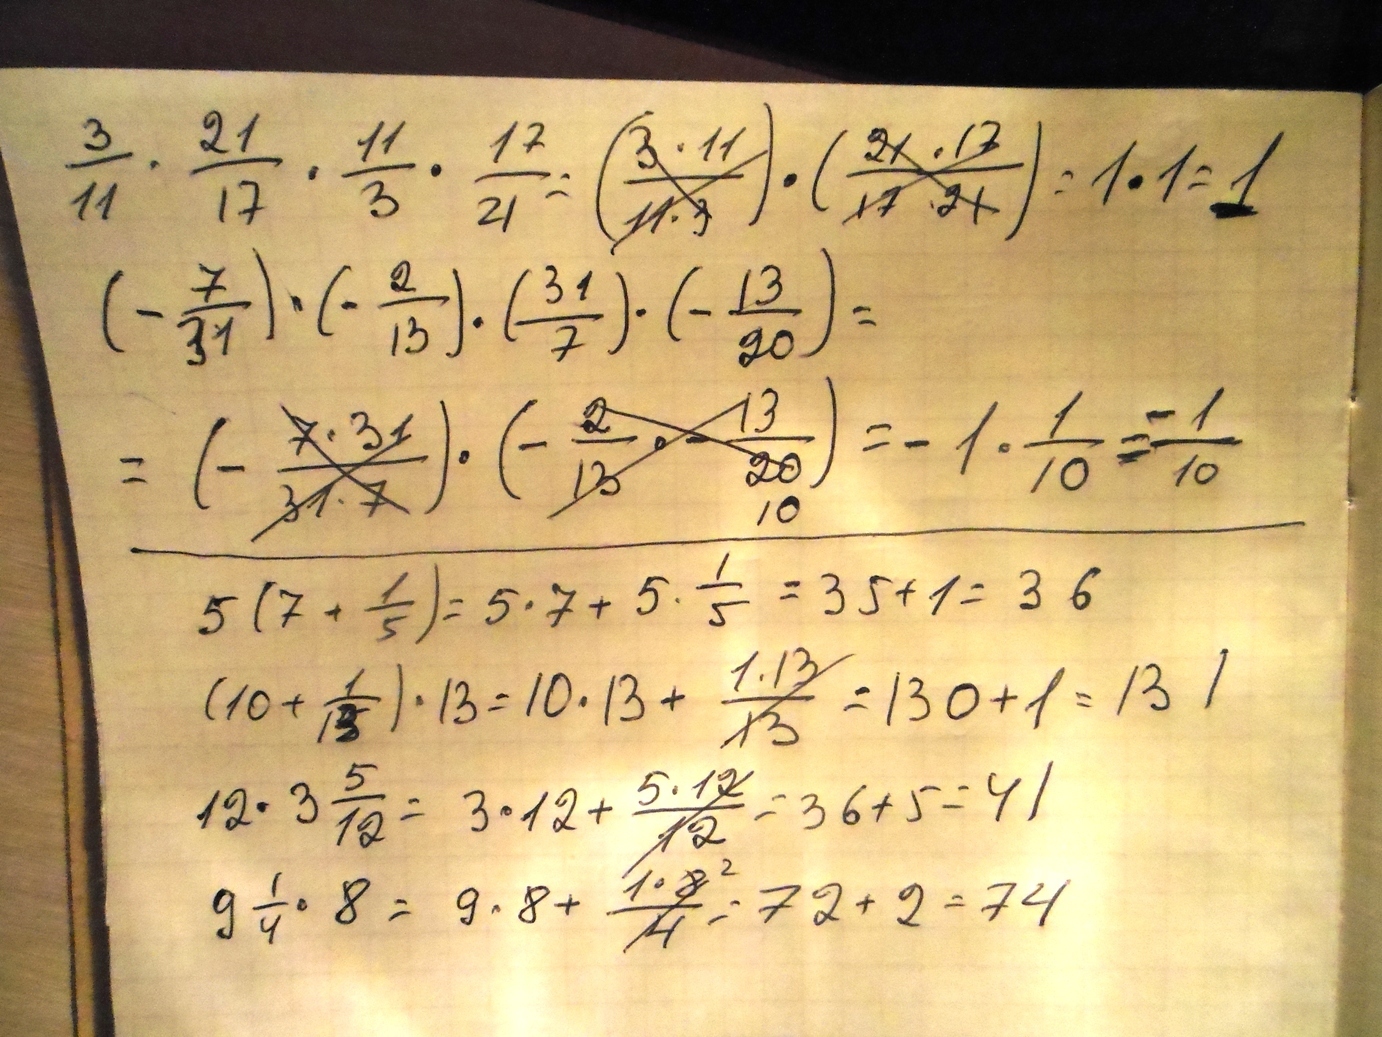 3/11 · 21/17 · 11/3 · 17/21 = (3·11/11·3) · (21·17/17·21) = 1·1 = 1
(- 7/31) · (- 2/13) · (31/7) · (- 13/20) =
= (- 7·31/31·7) · (- 2/13 · - 13/20 10) = - 1 · 1/10 = -1/10
5(7 + 1/5) = 5·7 + 5 · 1/5 = 35 + 1 = 36
(10 + 1/13) · 13 = 10·13 + 1·13/13 = 130 + 1 = 131
12 · 3 5/12 = 3·12 + 5·12/12 = 36 + 5 = 41
9 1/4 · 8 = 9·8 + 1·8²/4 = 72 + 2 = 74